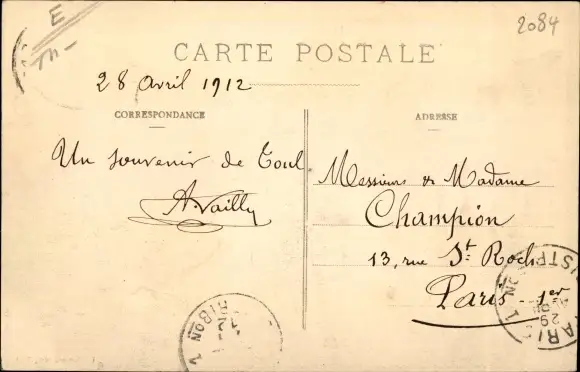 E
2084
CARTE POSTALE
28 Avril 1912
CORRESPONDANCE
ADRESSE
Un souvenir de Toul.
A. Vailly
Messieurs & Madame
Champion
13, rue St. Roch
Paris - 1er
29